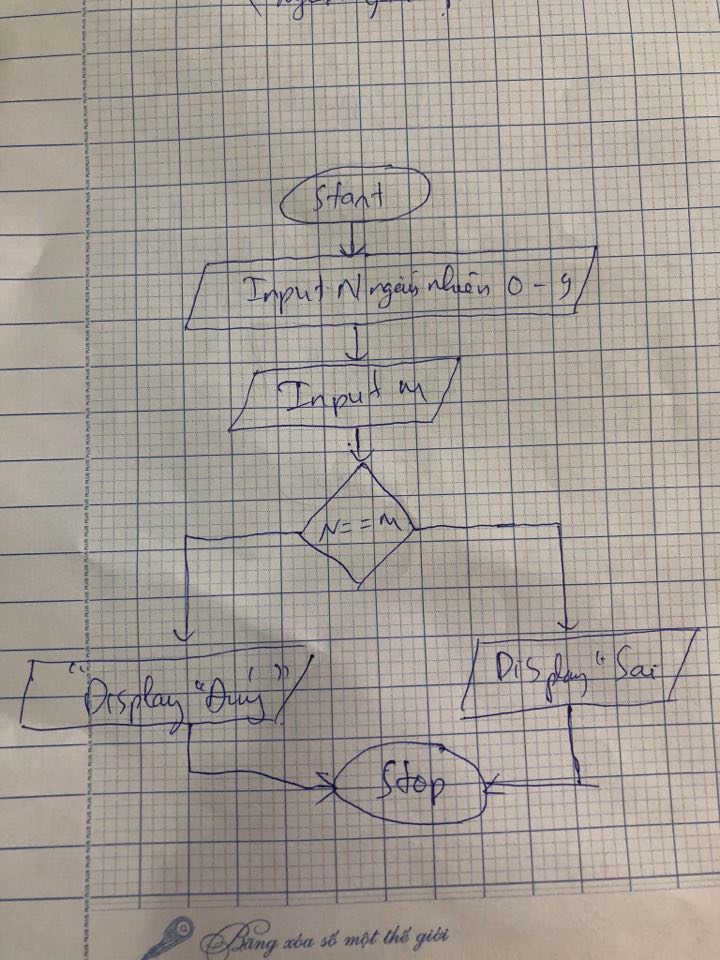 Start
Input N ngẫu nhiên 0 - 9
Input m
N==M
"Display "Đúng"
Display "Sai
Stop
Băng xóa số một thế giới